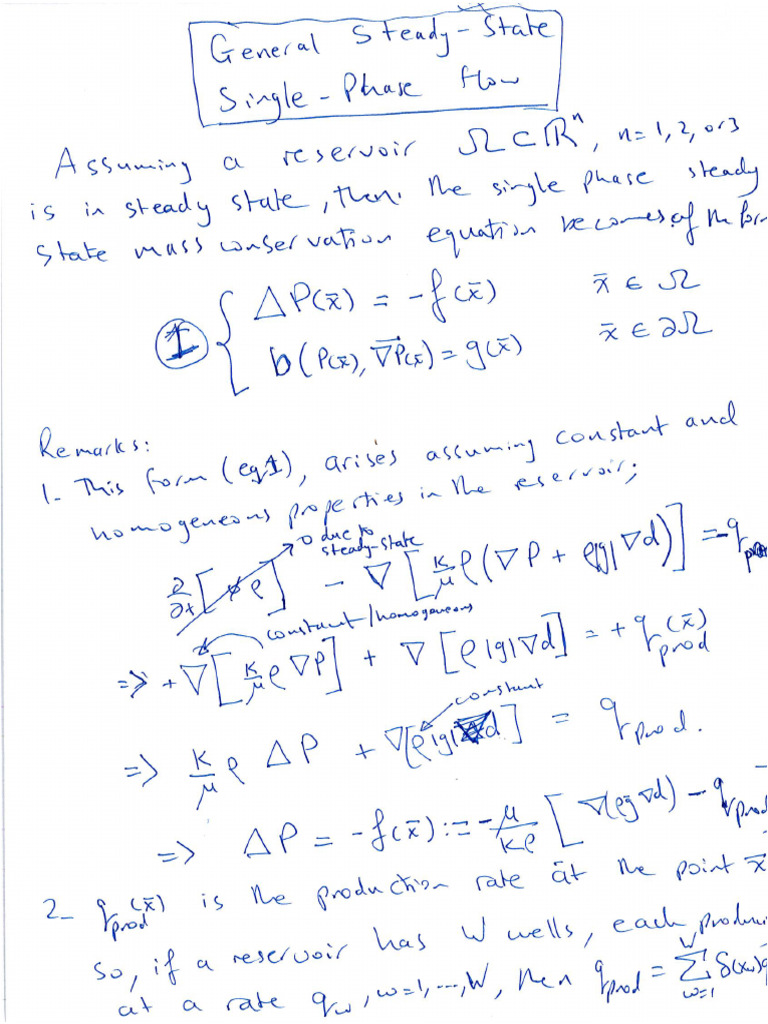 General Steady-State
Single-Phase flow
Assuming a reservoir Ω⊂ℝⁿ, n=1,2, or 3
is in steady state, then the single phase steady
state mass conservation equation becomes of the form
① { ΔP(x̄) = -f(x̄) x̄ ∈ Ω
b(P(x̄), ∇⃗P(x̄)) = g(x̄) x̄ ∈ ∂Ω
Remarks:
1- This form (eq1), arises assuming constant and
homogeneous properties in the reservoir;
0 due to
steady-state
∂/∂t [φρ] - ∇[κ/μ ρ(∇P + ρ|g|∇d)] = -q
constant/homogeneous
=> +∇[κ/μ ρ∇P] + ∇[ρ|g|∇d] = + q_prod(x̄)
constant
=> κ/μ ρ ΔP + ∇[ρ|g|∇d] = q_prod.
=> ΔP = -f(x̄) := -μ/κρ [∇(ρg∇d) - q_prod
2- q_prod(x̄) is the production rate at the point x̄
so, if a reservoir has W wells, each
at a rate q_w, w=1,...,W, then q_prod = Σ_{w=1}^{W} δ(x_w)q